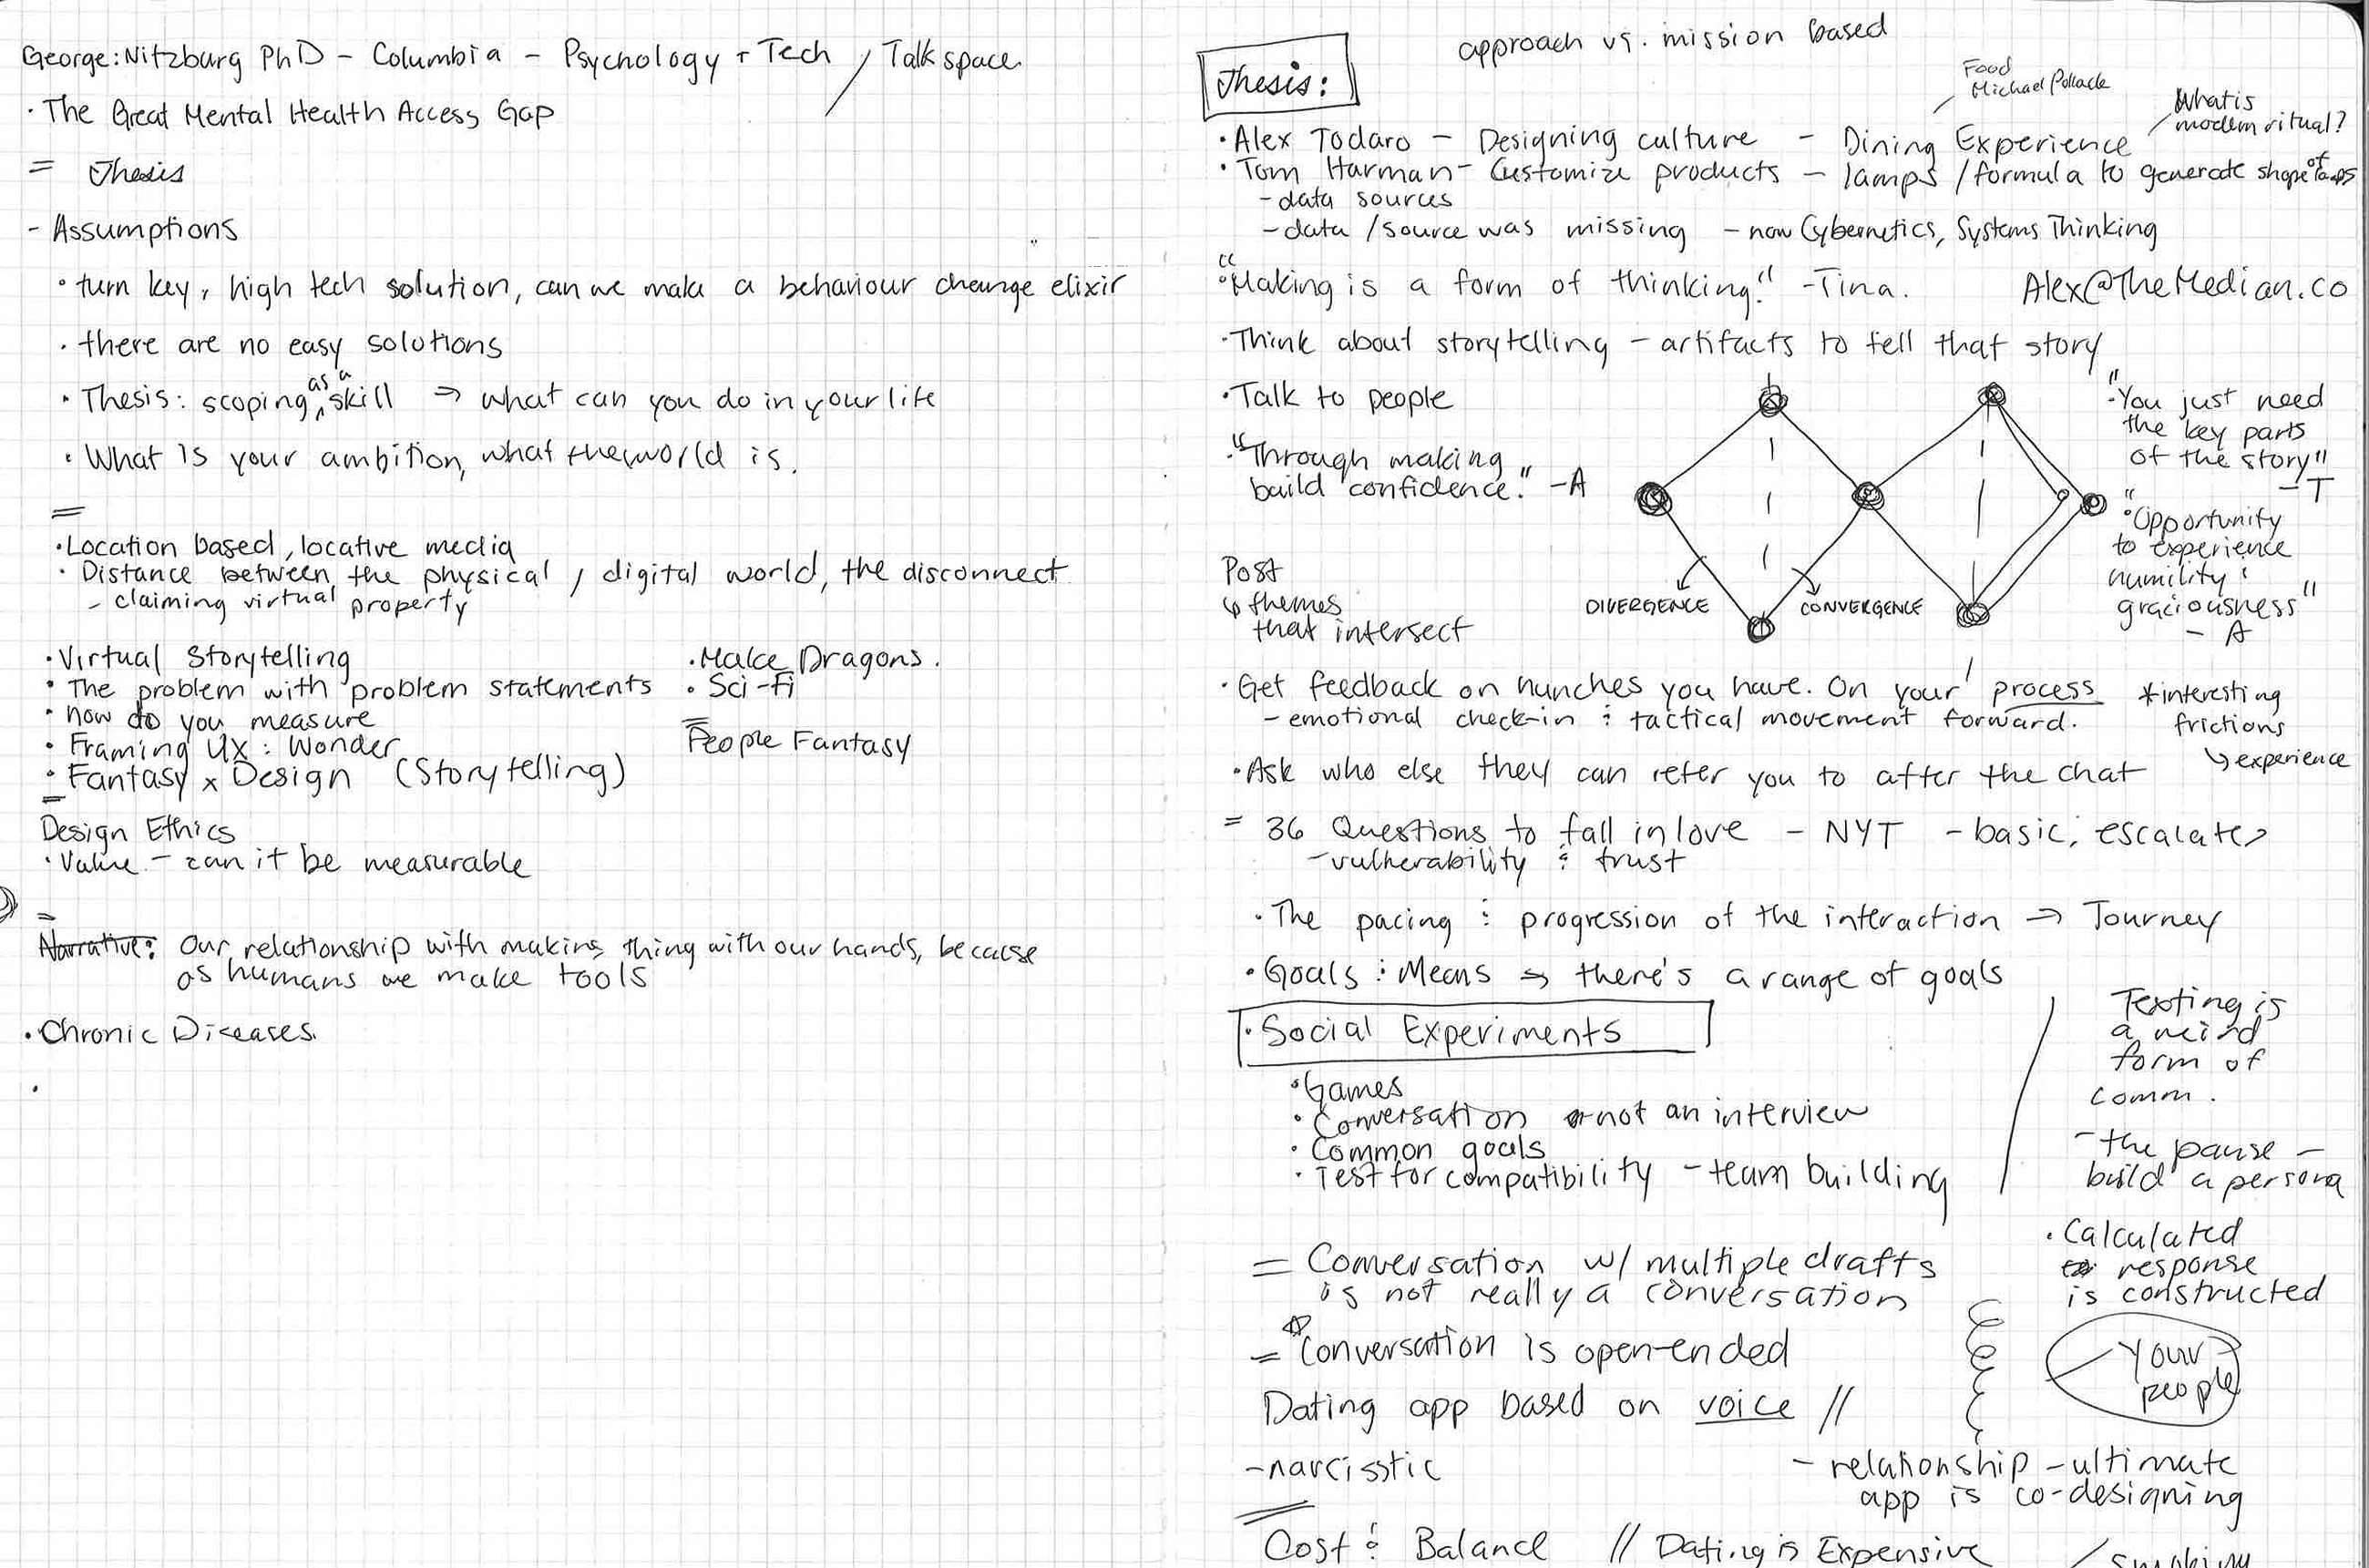 George: Nitzburg PhD - Columbia - Psychology + Tech / Talkspace
· The Great Mental Health Access Gap
= Thesis
- Assumptions
· turn key, high tech solution, can we make a behaviour change elixir
· there are no easy solutions
· Thesis: scoping as a skill → what can you do in your life
· What is your ambition, what the world is.
=
· Location based, locative media
· Distance between the physical / digital world, the disconnect
- claiming virtual property
· Virtual Storytelling
· The problem with problem statements
· how do you measure
· Framing UX : Wonder
· Fantasy x Design (Storytelling)
· Make Dragons.
· Sci-Fi
=
People Fantasy
=
Design Ethics
· Value - can it be measurable
=
Narrative: Our relationship with making thing with our hands, because
as humans we make tools
· Chronic Diseases.
·
approach vs. mission based
Thesis:
Food
Michael Pollack
What is
modern ritual?
· Alex Todaro - Designing culture - Dining Experience
· Tom Harman - Customize products - lamps / formula to generate shape of lamps
- data sources
- data / source was missing - now Cybernetics, Systems Thinking
· "Making is a form of thinking." - Tina.
Alex@TheMedian.co
· Think about storytelling - artifacts to tell that story
· Talk to people
· "Through making
build confidence." - A
Post
↳ themes
that intersect
DIVERGENCE
CONVERGENCE
"You just need
the key parts
of the story"
- T
"Opportunity
to experience
humility &
graciousness"
- A
· Get feedback on hunches you have. On your process
- emotional check-in & tactical movement forward.
* interesting
frictions
↳ experience
· Ask who else they can refer you to after the chat
= 36 Questions to fall in love - NYT - basic, escalates
- vulnerability & trust
· The pacing & progression of the interaction → Journey
· Goals & Means → there's a range of goals
· Social Experiments
· Games
· Conversation not an interview
· Common goals
· Test for compatibility - team building
Texting is
a weird
form of
comm.
- the pause -
build a persona
· Calculated
response
is constructed
= Conversation w/ multiple drafts
is not really a conversation
= Conversation is open-ended
Your
people
Dating app based on voice //
- narcisstic
- relationship - ultimate
app is co-designing
=
Cost & Balance // Dating is Expensive